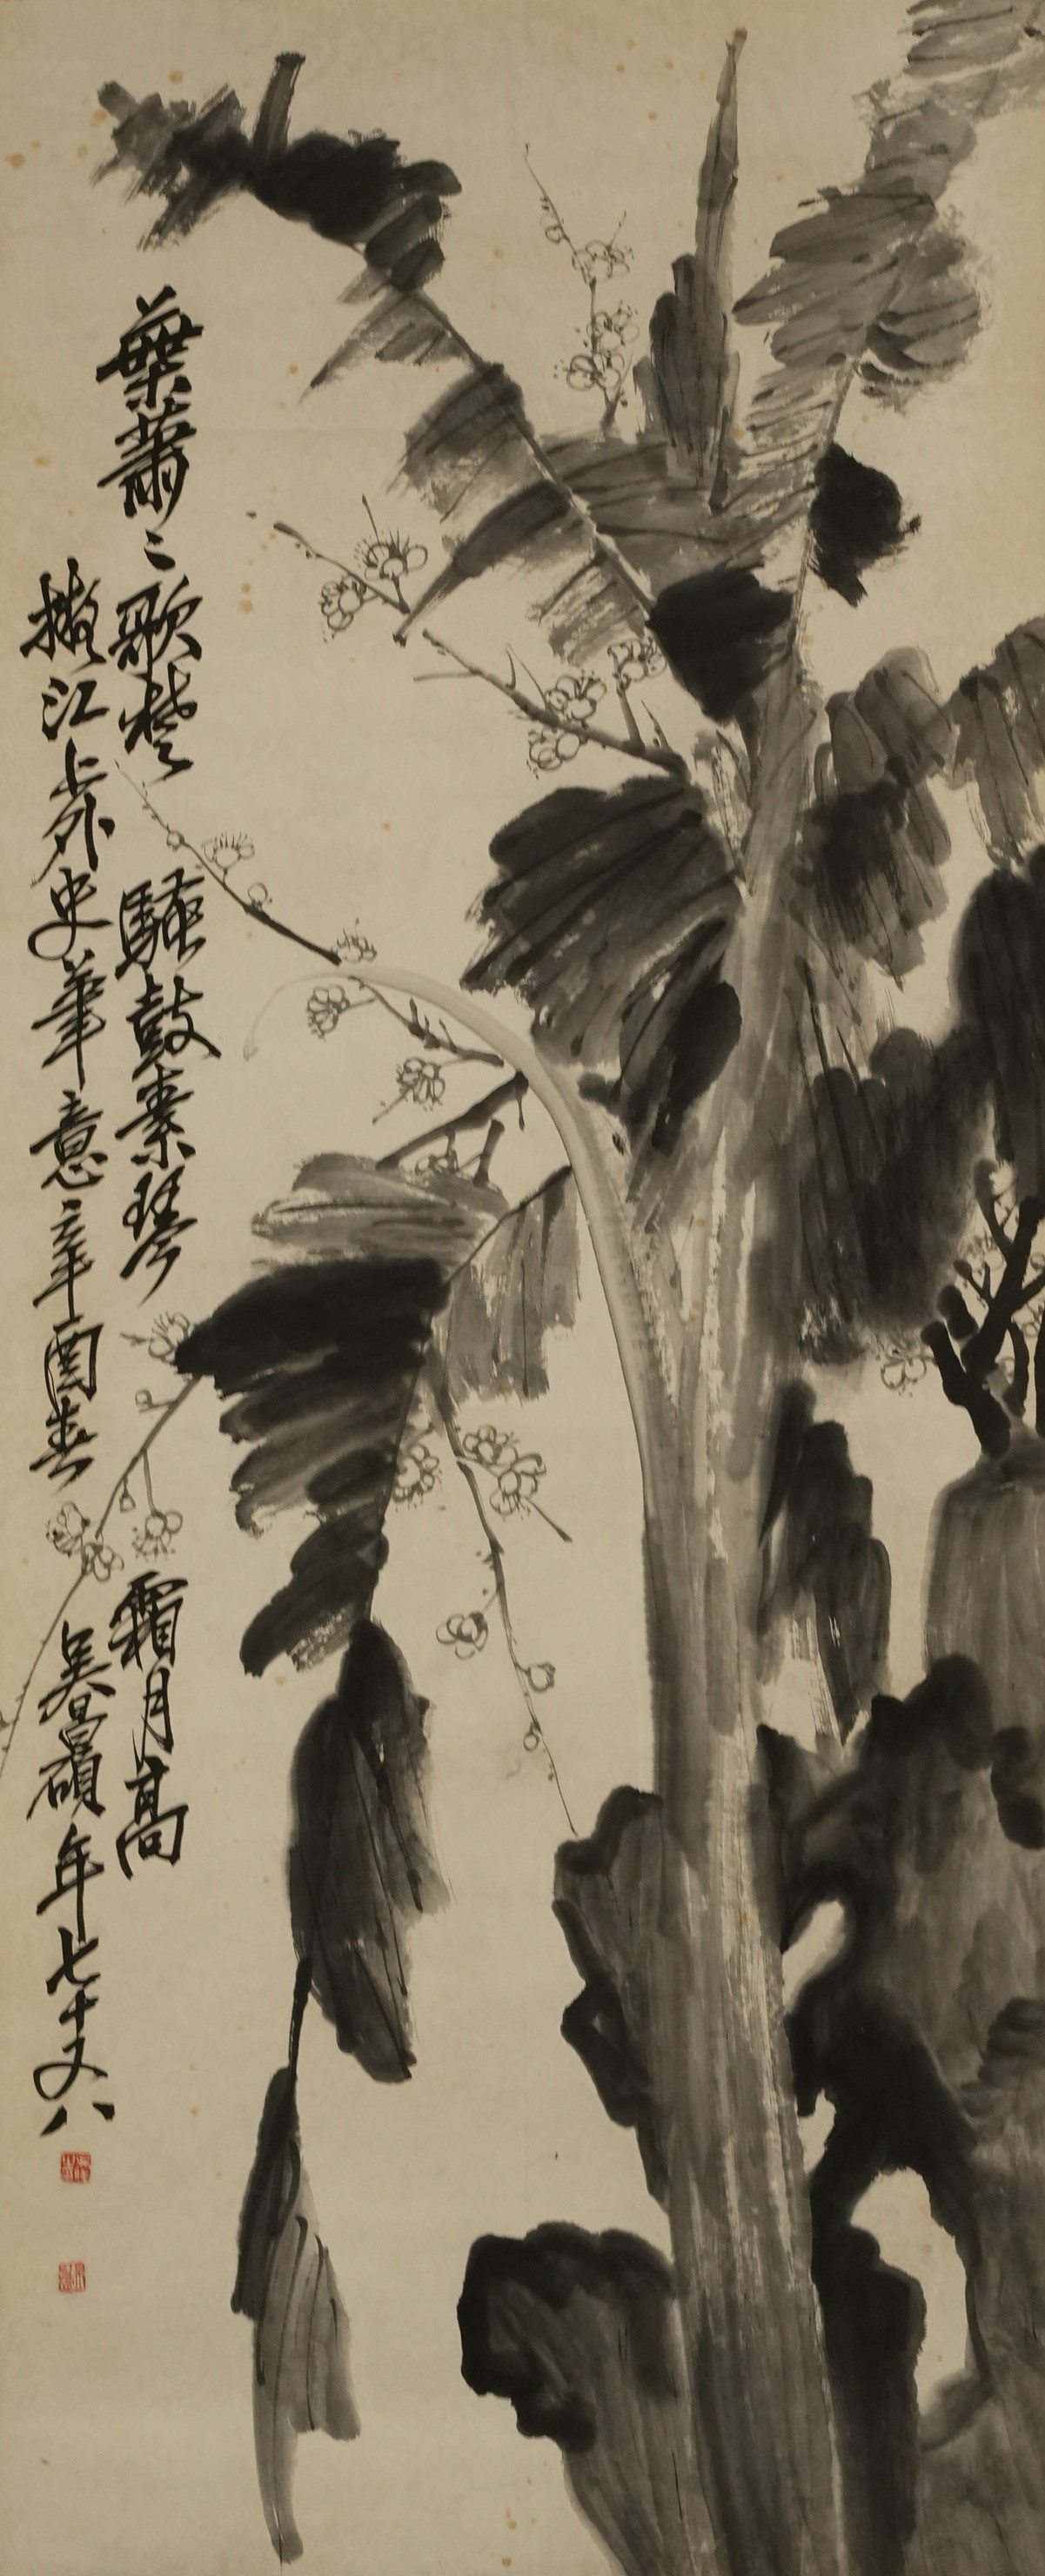 葉蕭〻歌楚騷鼓素琴霜月高
擬江上外史筆意辛酉春吳昌碩年七十又八